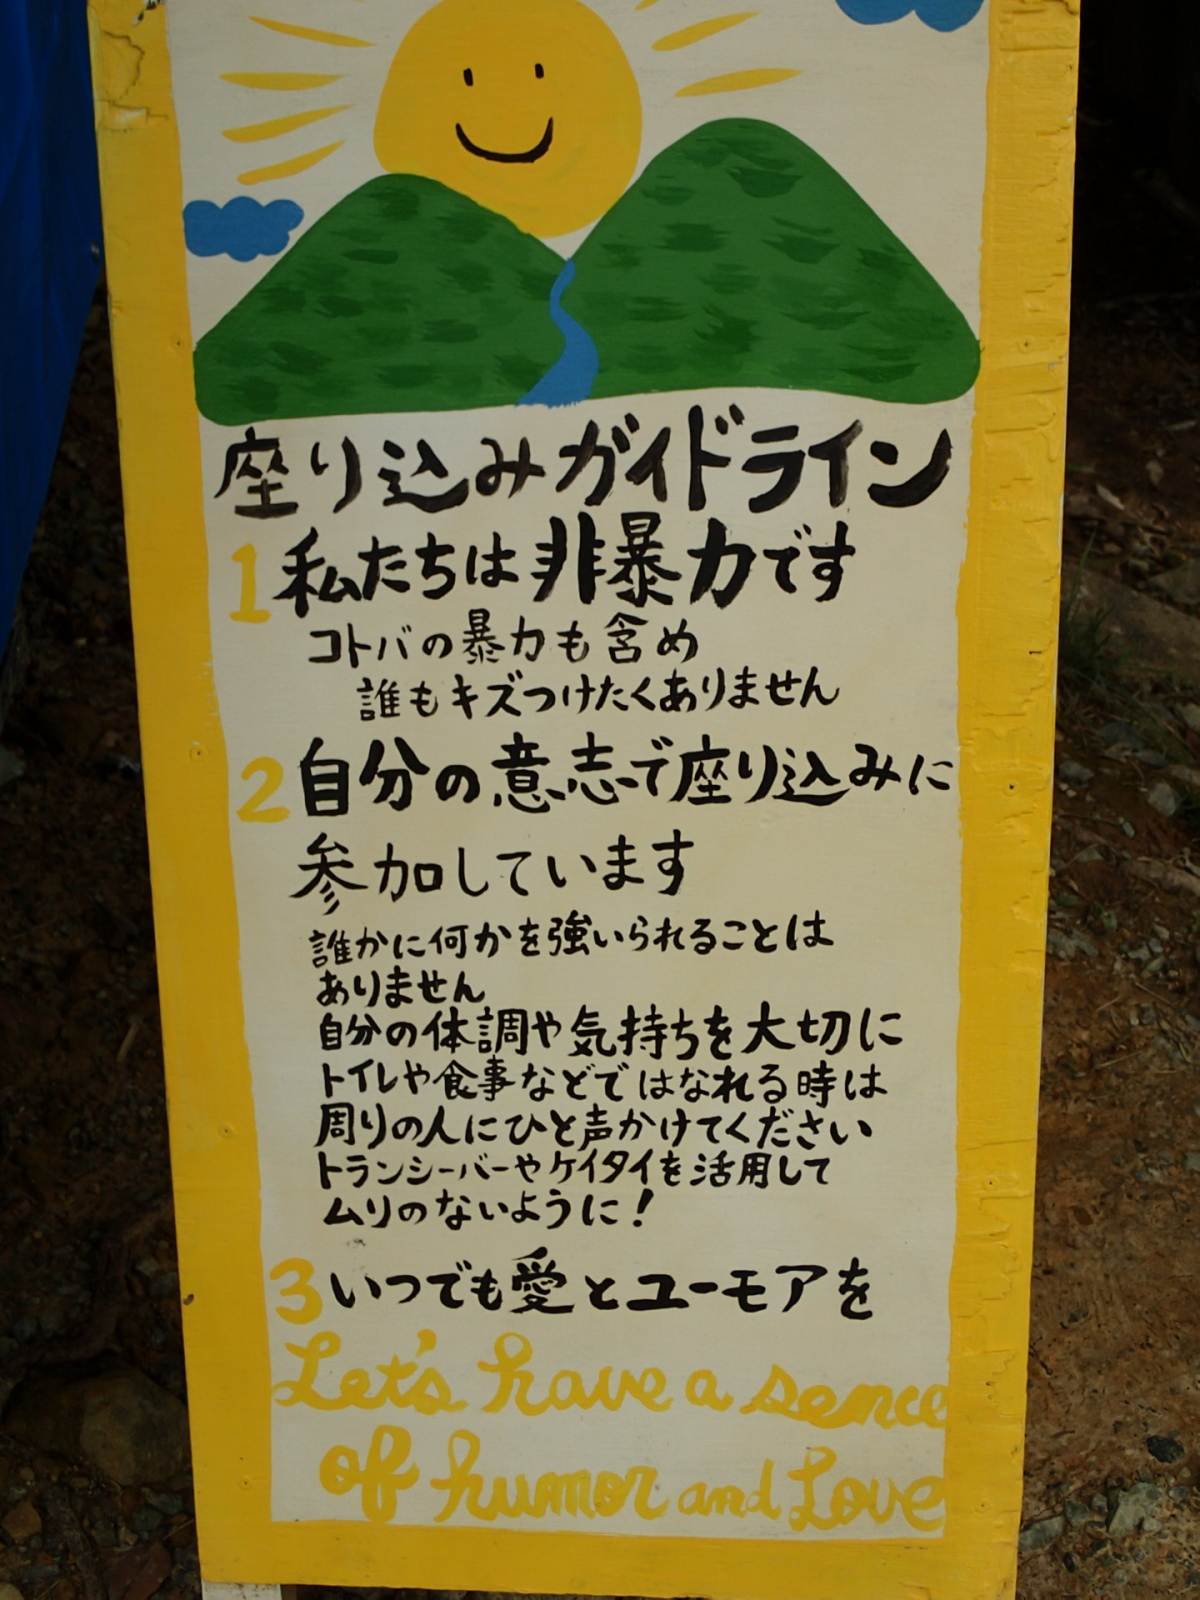 座り込みガイドライン
1 私たちは非暴力です
コトバの暴力も含め
誰もキズつけたくありません
2 自分の意志で座り込みに
参加しています
誰かに何かを強いられることは
ありません
自分の体調や気持ちを大切に
トイレや食事などではなれる時は
周りの人にひと声かけてください
トランシーバーやケイタイを活用して
ムリのないように!
3 いつでも愛とユーモアを
Let's have a sence
of humor and Love